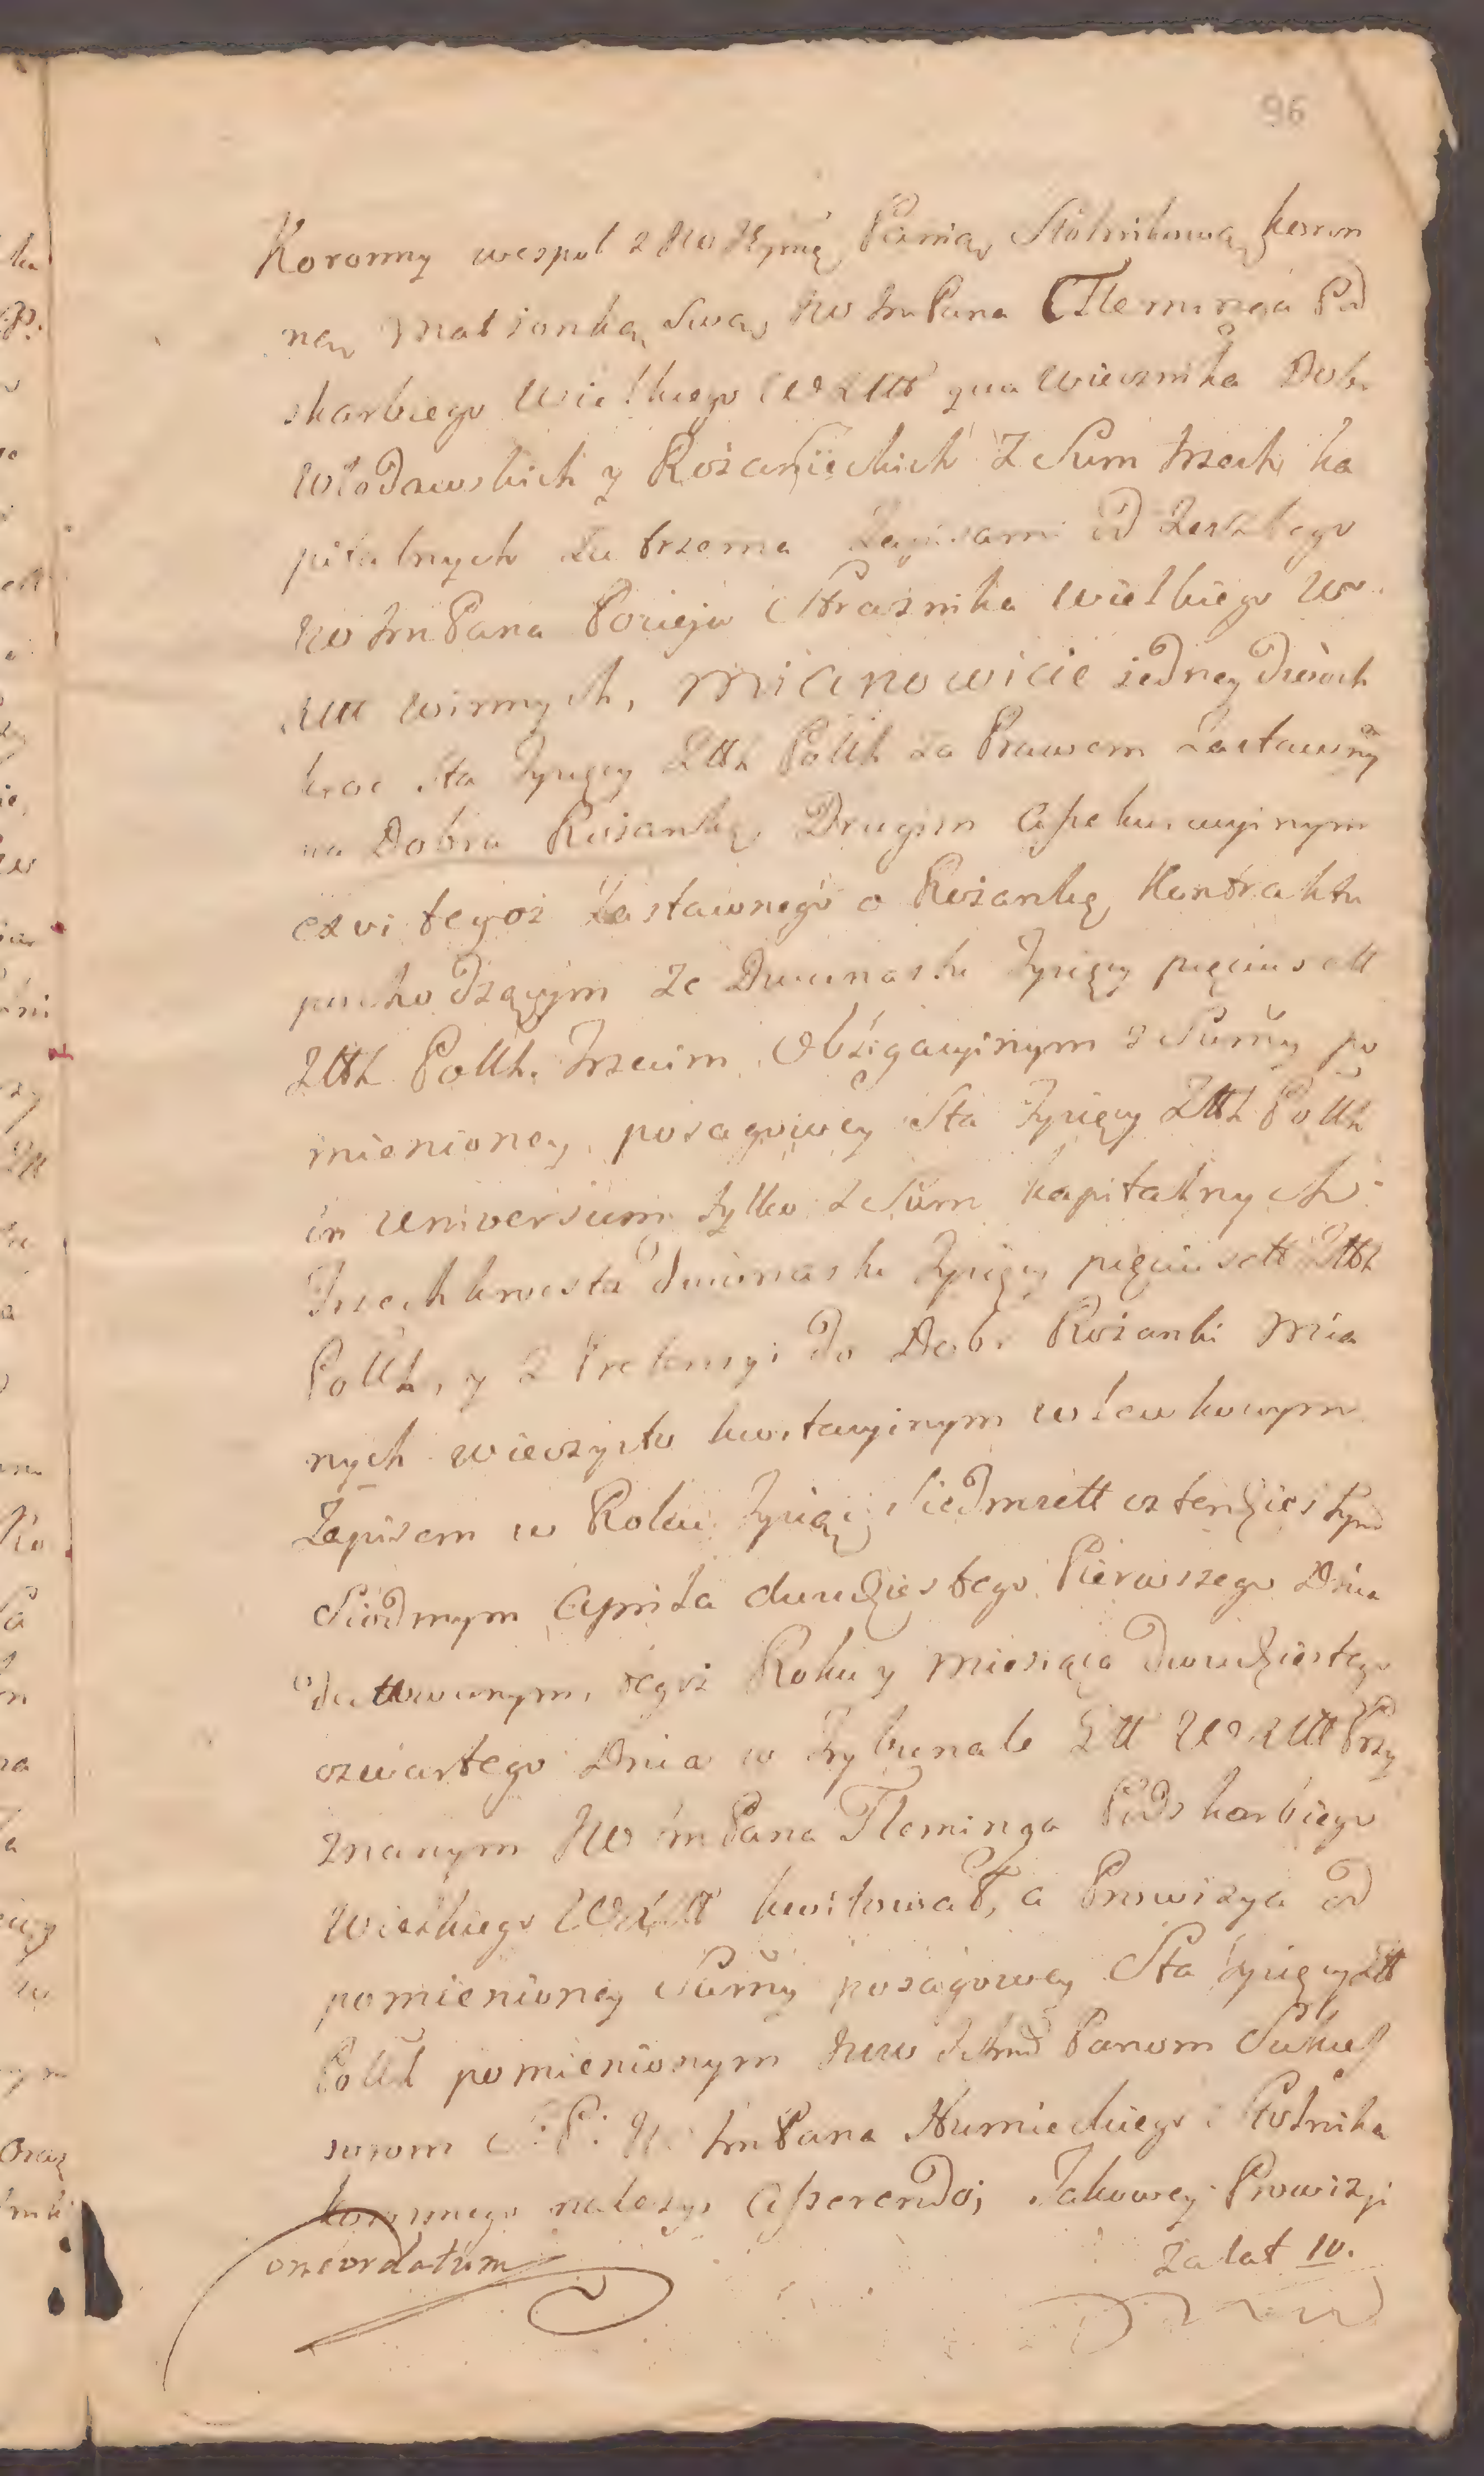 96
Koronny wespoł z JW Jeymę Panią Stolnikową koron
ną Małżonką Swą, JW Jm Pana Fleminga Pod
skarbiego Wielkiego WXLitt qua wiecznika Dobr
Włodawskich y Rożanieckich z Sum trzech ka
pitalnych za trzema Zapisami od Zeszłego
JW Jm Pana Pocieja Strażnika Wielkiego W.
XLitt winnych, Mianowicie jedney dwóch
kroc sta Tysięcy Złłh Pollh za Prawem Zastawnỹ
na Dobra Rożankę, Drugim Assekuracyinym
ex vi tegoż Zastawnego o Rożankę Kontraktu
pochodzącym ze Dwunastu Tysięcy pięciuset
Złłh Pollh. Trzecim Obligacyinym z Summy po
mienioney posagowey Sta Tysięcy Złłh Pollh
in universum tylko z Sum kapitalnych
Trzechkroćsta dwunastu Tysięcy pięciuset Złłh
Pollh, y z Pretensyi do Dobr Rożanki Mia
nych wieczysto kwitacyinym wlewkowym
Zapisem w Roku Tysiąc Siedmsett czterdziestym
Siodmym Apryla dwudziestego Pierwszego Dnia
dattowanym, tegoż Roku y Miesiąca dwudziestego
czwartego Dnia w Trybunale Głł WXLitt Przy
znanym JW Jm Pana Fleminga Podskarbiego
Wielkiego WXLitt kwitował, a Prowizya od
pomienioney Summy posagowey Sta tysięcy Złł
Pollh pomienionym JWW Ichmć Panom Sukces
sorom Ś: P: JW Jm Pana Humieckiego Stolnika
koronnego należy, Asserendo; Jakowey Prowizyi
oncordatum
za lat 10.